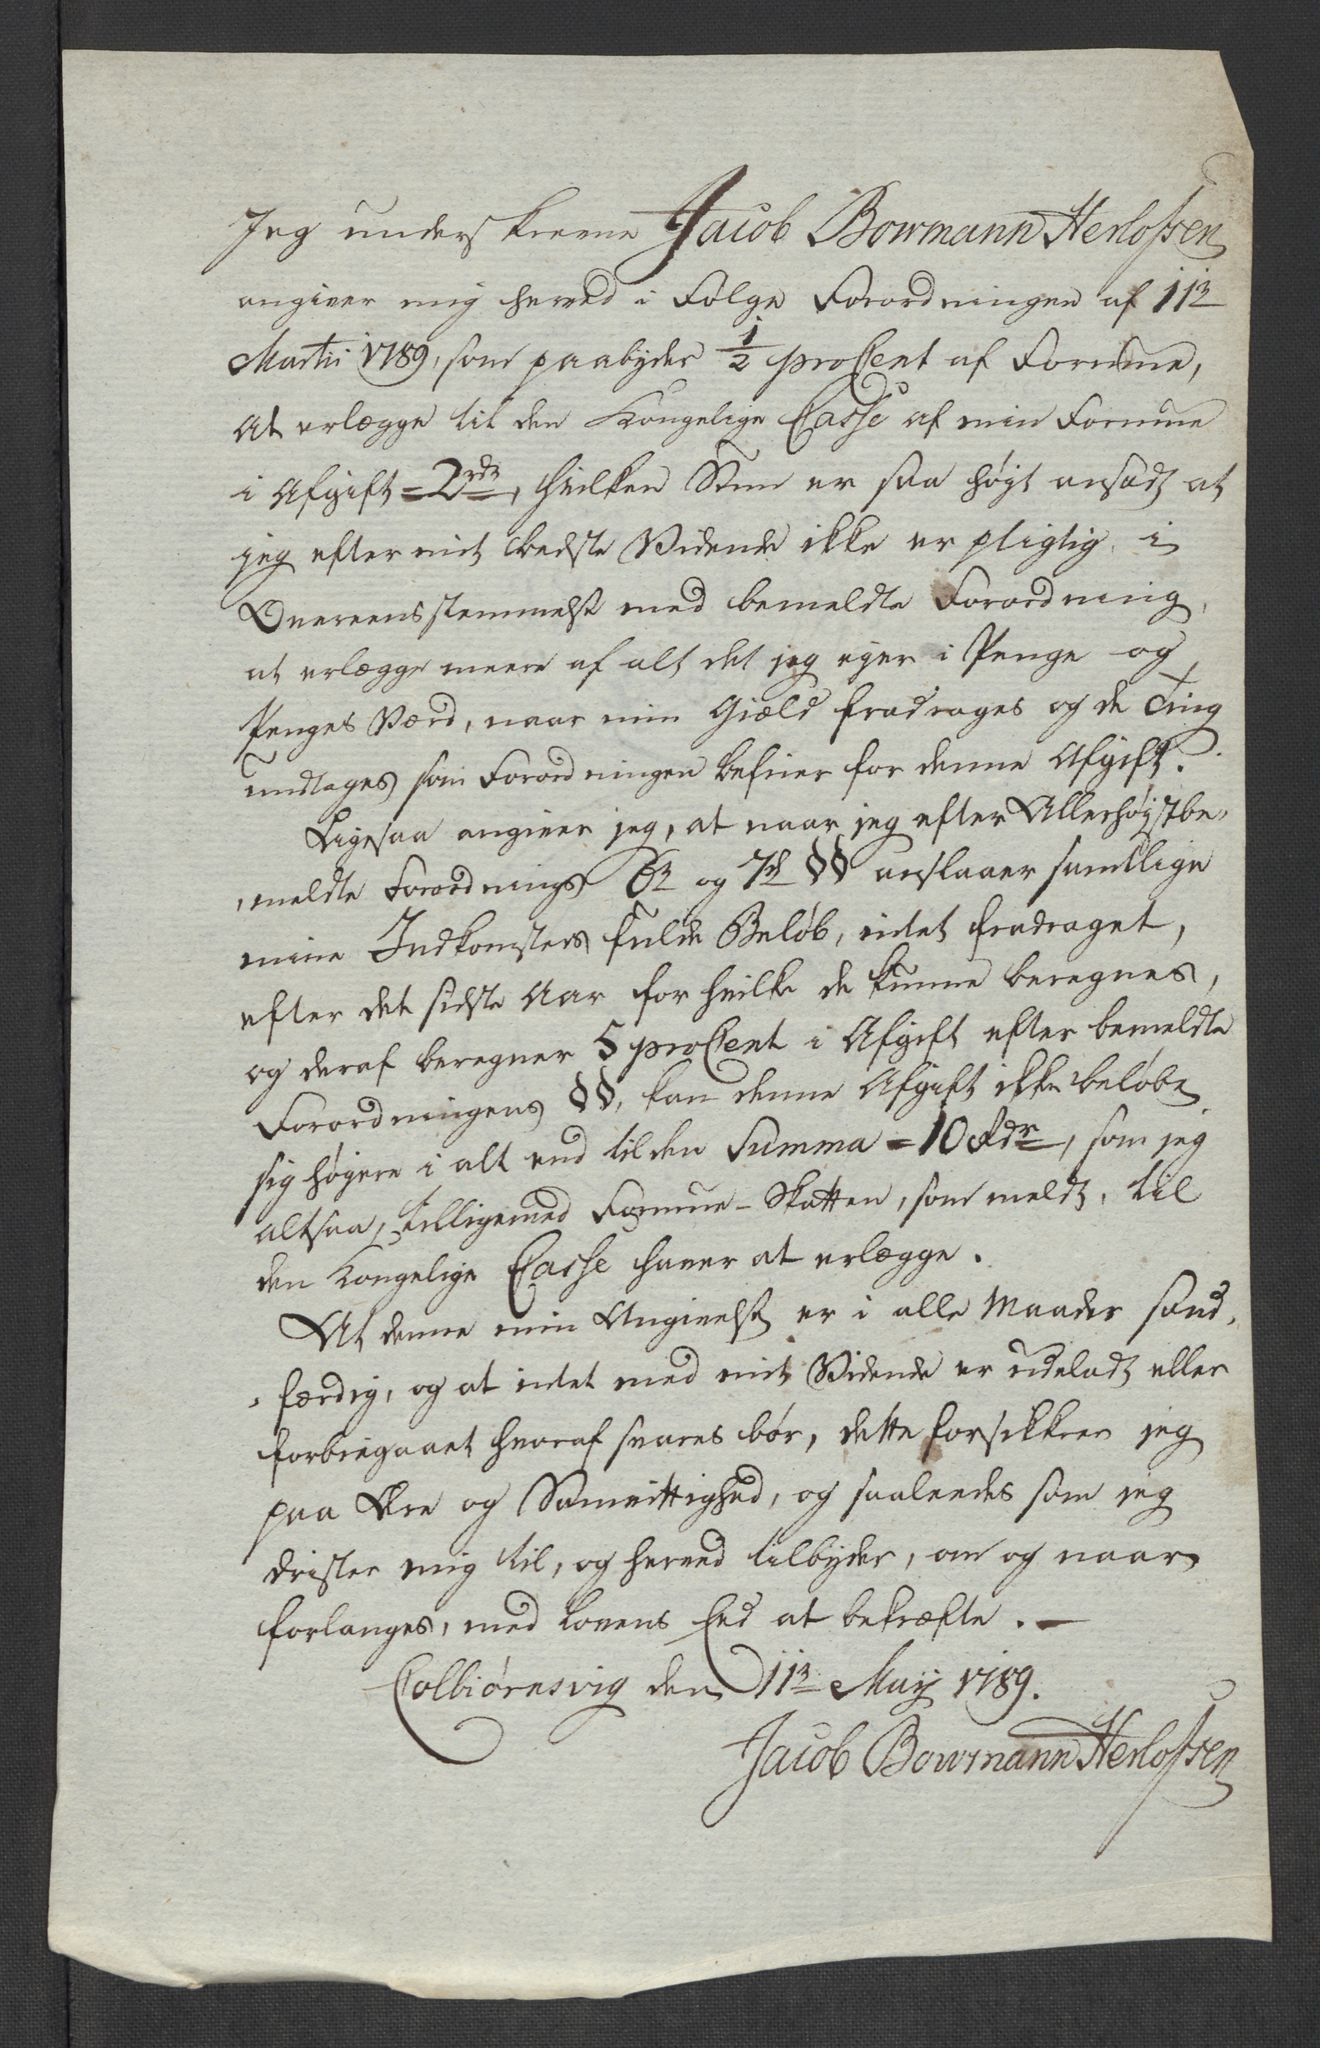 Jeg underskrevne Jacob Bowmann Herlofsen
angiver mig herved i Følge Forordningen af 11te
Martii 1789, som paabyder 1/2 proCent af Formue,
at erlægge til den Kongelige Casse af min Formue
i Afgift = 2 rdr, hvilken Sum er saa høyt ansadt at
jeg efter mit bedste Vidende ikke er pligtig, i
Overeensstemmelse med bemeldte Forordning,
at erlægge meere af alt det jeg eyer i Penge og
Penges Værd, naar min Giæld fradrages og de Ting
undtages som Forordningen befrier for denne Afgift.
Ligesaa angiver jeg, at naar jeg efter Allerhøystbe-
meldte Forordnings 6te og 7de §§ anslaaer samtlige
mine Indkomsters fulde Beløb, intet fradraget,
efter det sidste Aar for hvilke de kunne beregnes,
og deraf beregner 5 proCent i Afgift efter bemeldte
Forordningens §§, kan denne Afgift ikke beløbe
sig høyere i alt end til den Summa = 10 Rdr, som jeg
altsaa, tilligemed Formue-Skatten, som meldt, til
den Kongelige Casse haver at erlægge.
At denne min Angivelse er i alle Maader sand-
færdig, og at intet med mit Vidende er udeladt eller
forbiegaaet hvoraf svares bør, dette forsikkrer jeg
paa Ære og Samvittighed, og saaleedes som jeg
drister mig til, og herved tilbyder, om og naar
forlanges, med Lovens Eed at bekræfte. —
Colbiørnsvig den 11te Maij 1789.
Jacob Bowmann Herlofsen